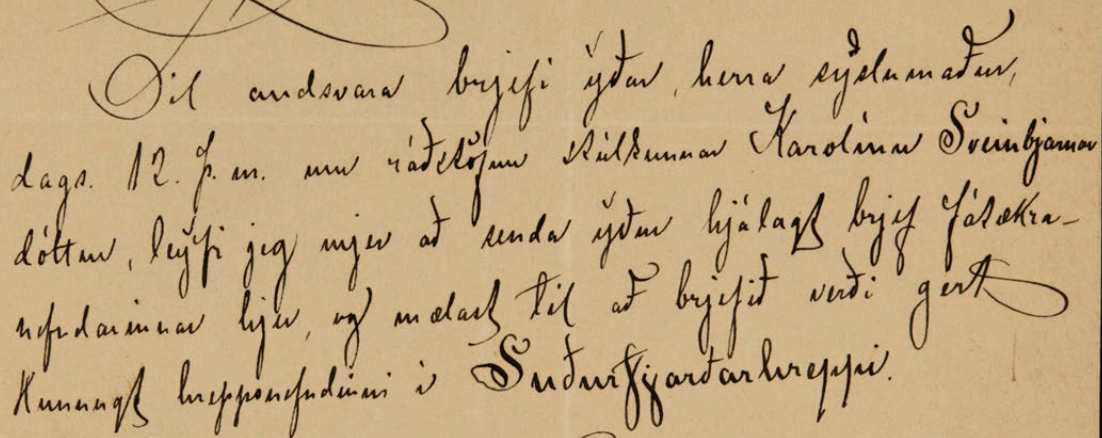 Til andsvara brjefi ýðar, herra sýslumaður,
dags. 12. þ. m. um ráðstöfun stúlkunnar Karolínu Sveinbjarnar
dóttur, leýfi jeg mjer að senda ýður hjálagt brjef fátækra-
nefndarinnar hjer, og mælast til að brjefið verði gert
kunnugt hreppsnefndinni í Suðurfjarðarhreppi.